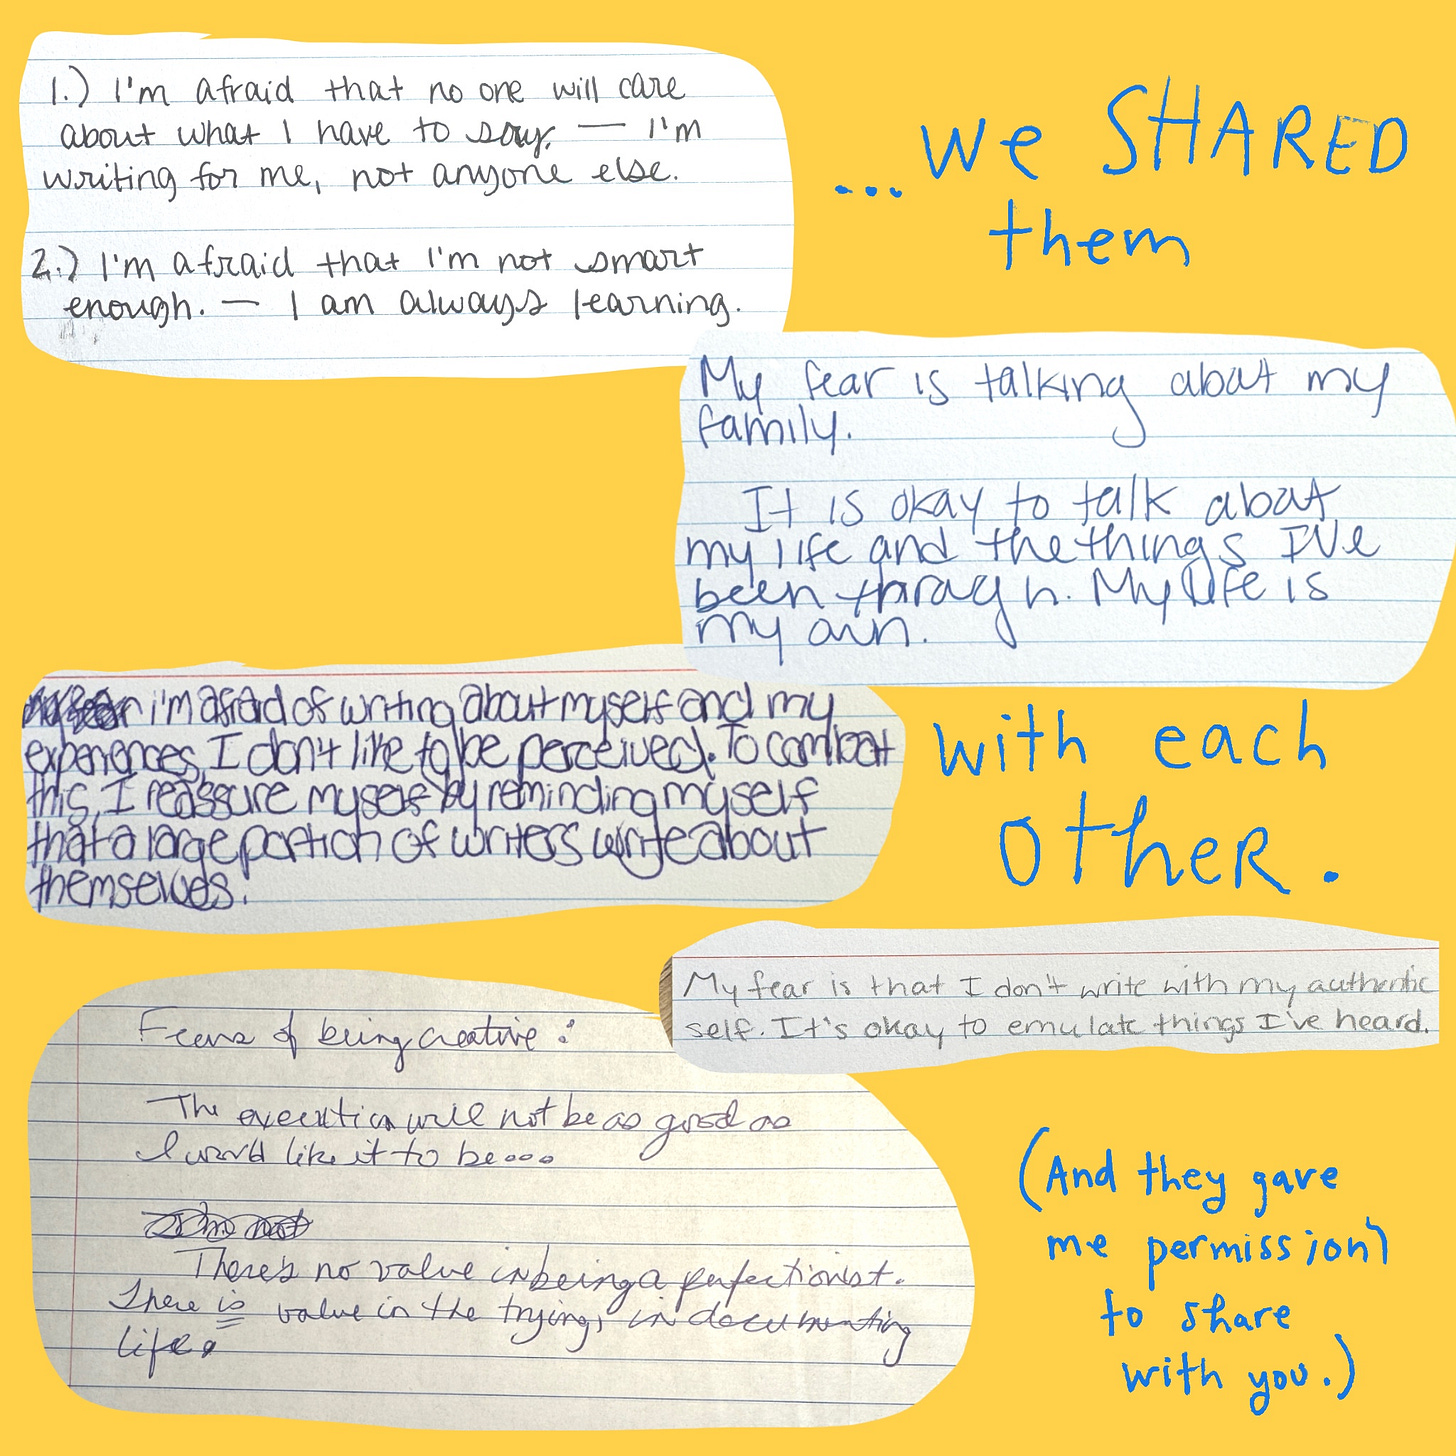 1.) I'm afraid that no one will care
about what I have to say. — I'm
writing for me, not anyone else.
2.) I'm afraid that I'm not smart
enough. — I am always learning.
...we SHARED
them
My fear is talking about my
family.
It is okay to talk about
my life and the things I've
been through. My life is
my own.
i'm afraid of writing about myself and my
experiences, I don't like to be perceived. To combat
this, I reassure myself by reminding myself
that a large portion of writers write about
themselves.
with each
OTHER.
My fear is that I don't write with my authentic
self. It's okay to emulate things I've heard.
Fears of being creative:
The execution will not be as good as
I would like it to be...
There's no value in being a perfectionist.
There is value in the trying, in documenting
life.
(And they gave
me permission
to share
with you.)